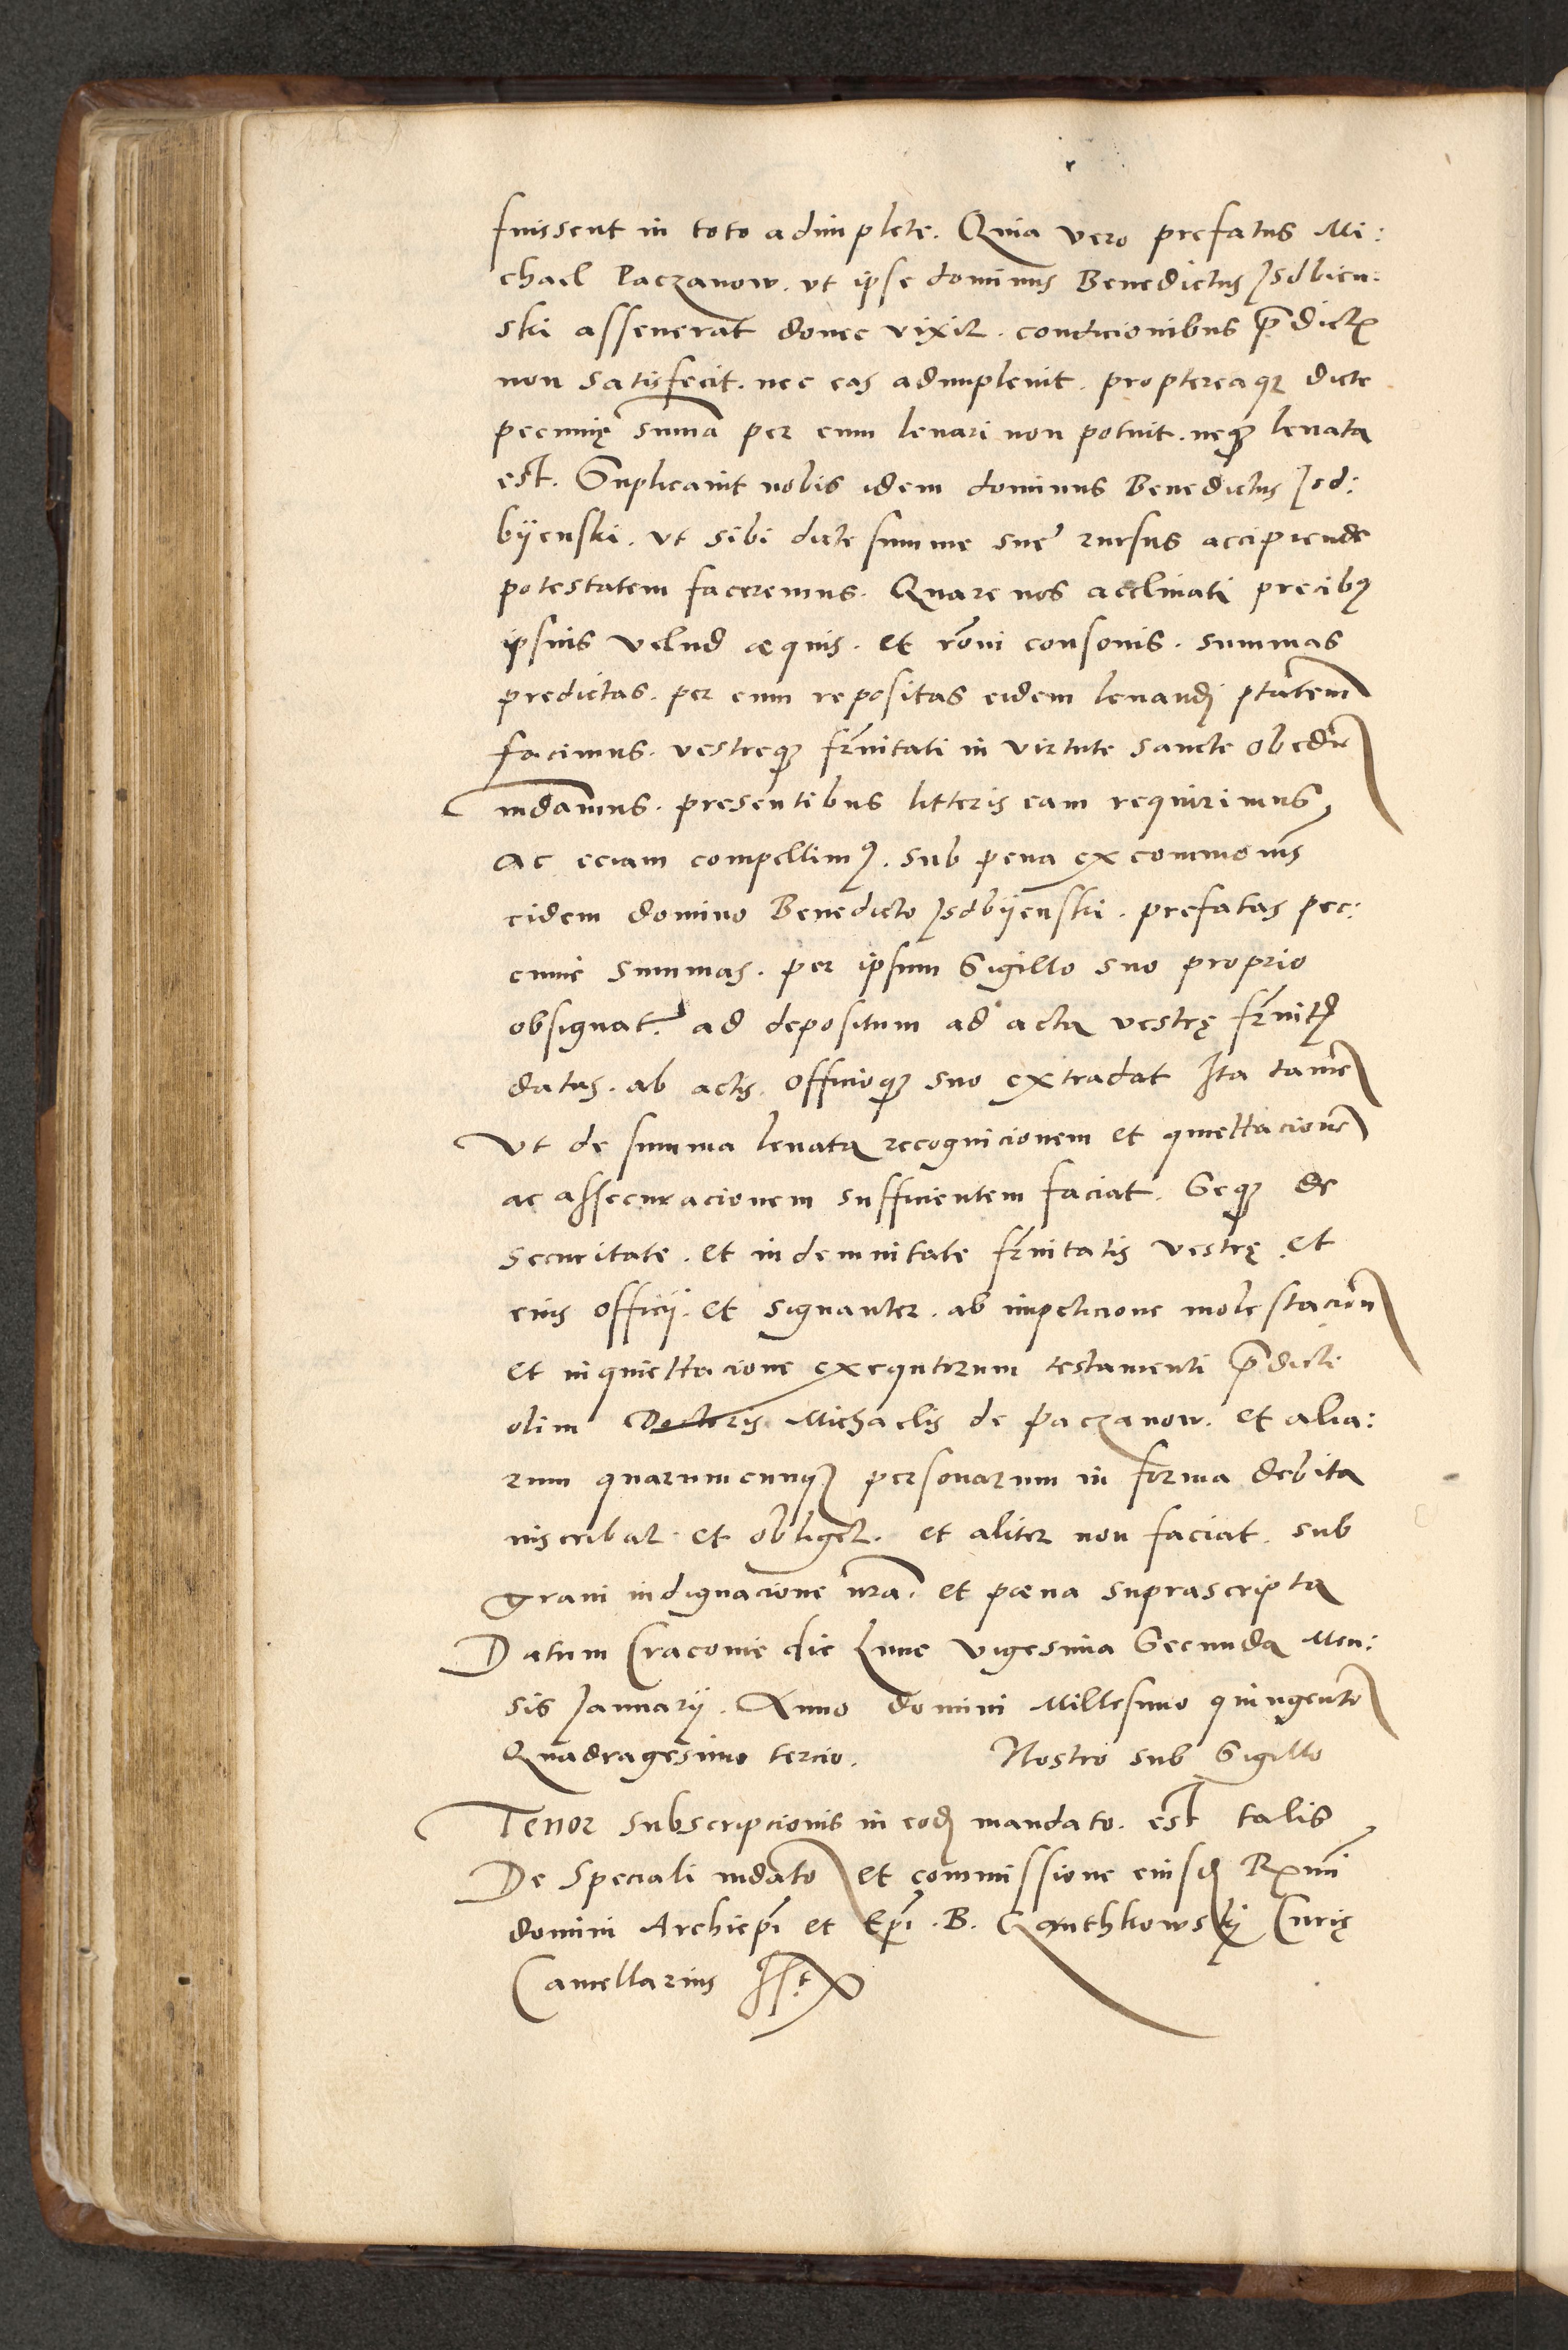 fuissent in toto adimplete. Quia vero prefatus Mi:
chael Paczanow. vt ipse dominus Benedictus Jsdbien:
ski asseuerat donec vixit. condicionibus p̄dictꝭ
non satisfecit. nec eas adimpleuit. proptereaqꝫ dicte
pecunię sum̄a per eum leuari non potuit. neqꝫ leuata
est. Suplicauit nobis idem dominus Benedictus Jsd:
bÿenski. vt sibi dicte summe sue rursus accipiende
potestatem faceremus. Quare nos acclinati precibꝰ
ipsius velud æquis. et rōni consonis. summas
predictas. per eum repositas eidem leuandj ptātem
facimus. vestreqꝫ fr̄nitati in virtute sancte obedīe
mdāmus. presentibus litteris eam requirimus,
ac eciam compellimꝰ. sub pena excommōnis
eidem domino Benedicto Jsdbÿenski. prefatas pec:
cunie summas. per ipsum Sigillo suo proprio
obsignat. ad depositum ad acta vestrę fr̄nitꝭ
datas. ab actis officioqꝫ suo extradat Ita tamē
Vt de summa leuata recognicionem et quiettacionē
ac assecuracionem sufficientem faciat. Seqꝫ de
securitate. et indemnitate fr̄nitatis vestrę et
eius officÿ. et signanter. ab impeticione molestacīon
et inquiettacione exequtorum testamenti p̄dicti
olim Doctoris Michaelis de Paczanow. et alia:
rum quarumcunqꝫ personarum in forma debita
inscribat et obliget. et aliter non faciat. sub
graui indignacione nr̄a. et pœna suprascripta
Datum Cracouie die Lune vigesima Secunda Men:
sis Januarÿ. Anno domini Millesimo quingento
Quadragesimo tercio. Nostro sub Sigillo
Tenor subscripcionis in eodj mandato. est talis,
De Speciali mdāto et commissione eiusdj Rx̄mi
domini Archiep̄i et Ep̄i. B. Ganthkowskÿ Curię
Cancellarius sst